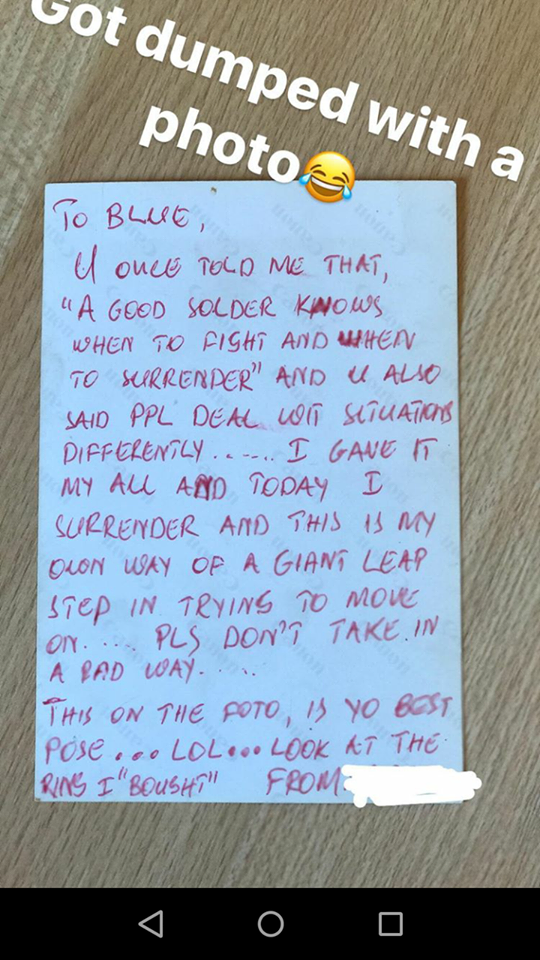 Got dumped with a
photo😂
TO BLUE,
U ONCE TOLD ME THAT,
"A GOOD SOLDER KNOWS
WHEN TO FIGHT AND WHEN
TO SURRENDER" AND U ALSO
SAID PPL DEAL WIT SITUATIONS
DIFFERENTLY...... I GAVE IT
MY ALL AND TODAY I
SURRENDER AND THIS IS MY
OWN WAY OF A GIANT LEAP
STEP IN TRYING TO MOVE
ON..... PLS DON'T TAKE IN
A BAD WAY.....
THIS ON THE FOTO, IS YO BEST
POSE...LOL...LOOK AT THE
RING I "BOUGHT" FROM